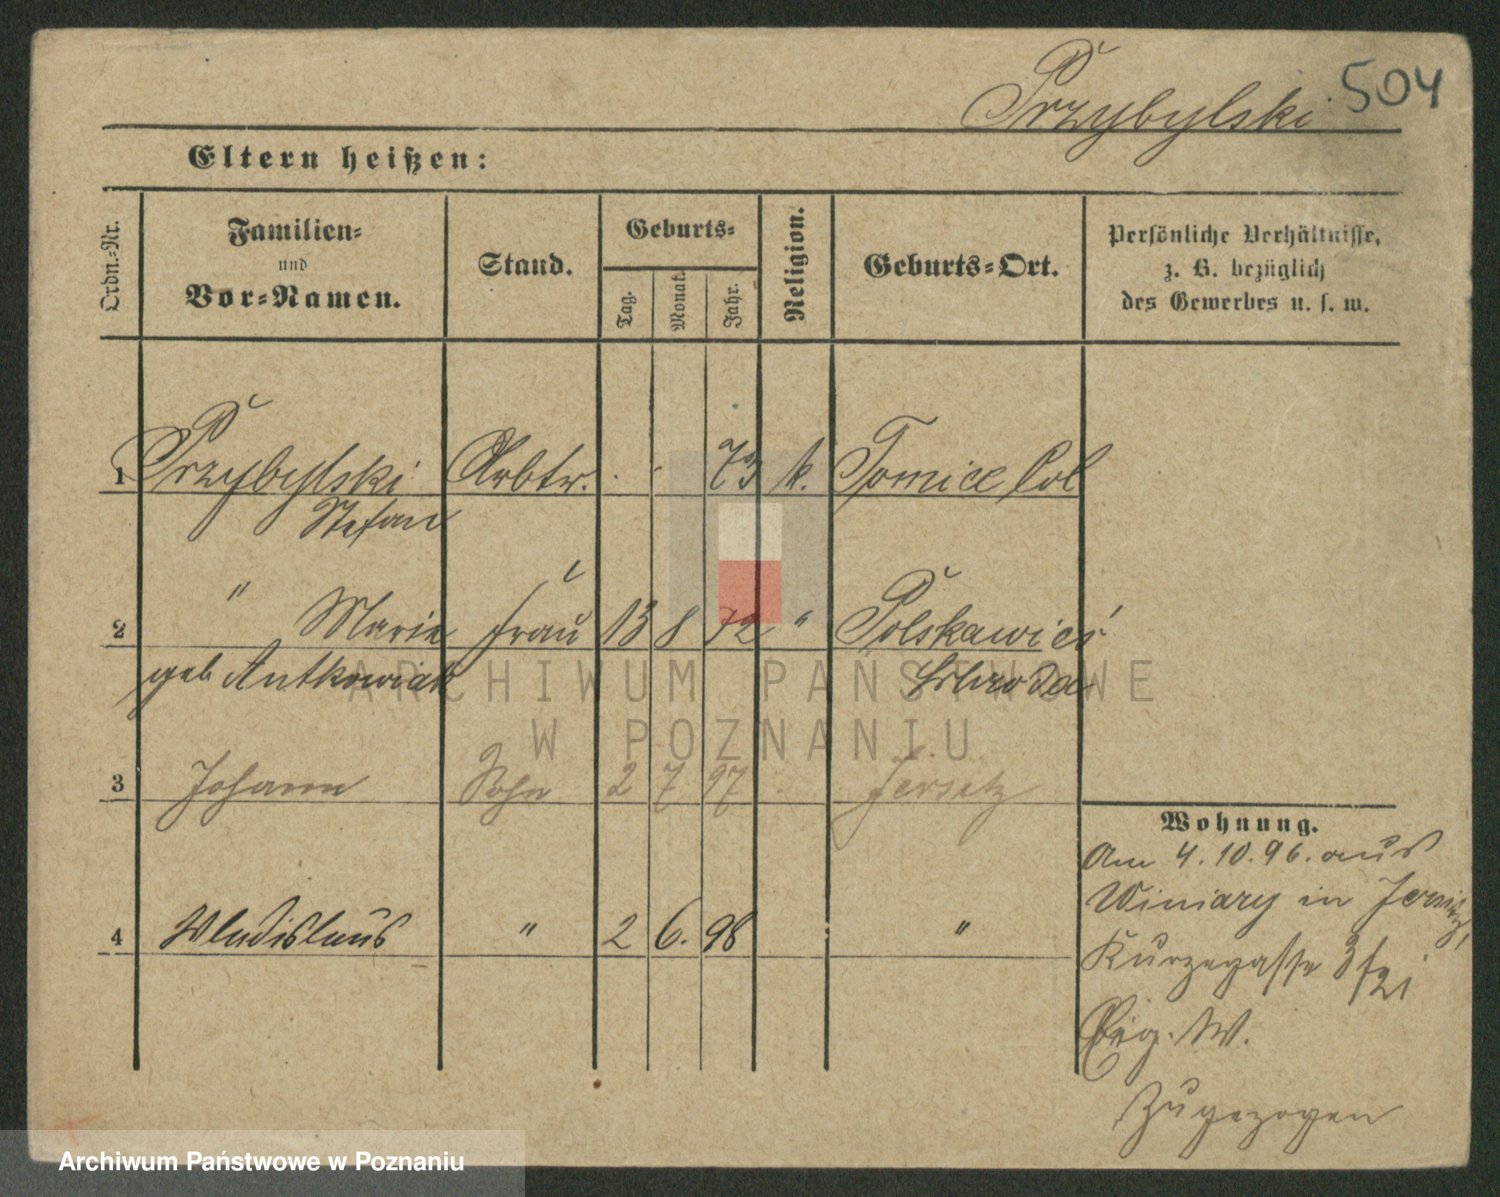 Przybylski 504
Eltern heißen:
Ordn.-Nr.
Familien-
und
Vor-Namen.
Stand.
Geburts-
Tag.
Monat.
Jahr.
Religion.
Geburts-Ort.
Persönliche Verhältnisse,
z. B. bezüglich
des Gewerbes u. s. w.
1 Przybylski Arbtr. 73 k. Tomice Col
Stefan
2 " Marie Frau 13 8 72 " Polskawieś
geb Antkowiak Schroda
3 Johann Sohn 2 7 97 Jersitz
4 Wladislaus " 2 6. 98 "
Wohnung.
Am 4. 10. 96. aus
Winiary in Jersitz,
Kurzegasse
W.
Zugezogen
ARCHIWUM PAŃSTWOWE
W POZNANIU
Archiwum Państwowe w Poznaniu